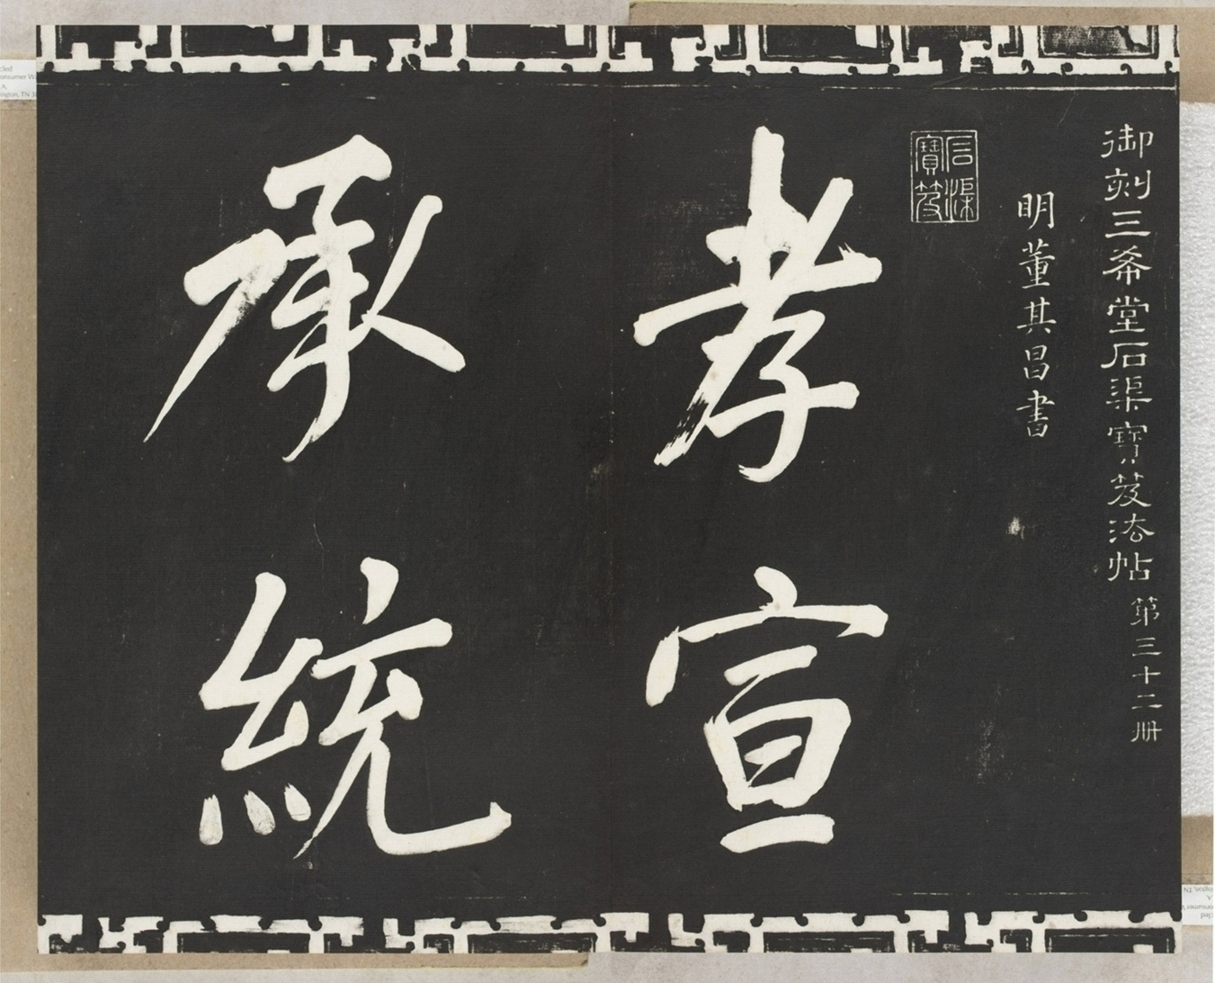 御刻三希堂石渠寶笈法帖 第三十二册
明董其昌書
石渠寶笈
孝宣
承統